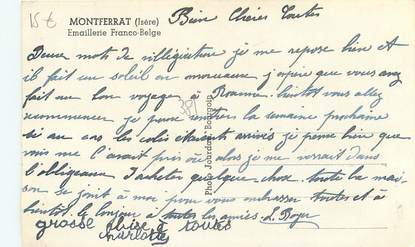 15 €
MONTFERRAT (Isère)
Emaillerie Franco-Belge
Bien Chères Toutes
Deux mots de villégiature je me repose bien et
il fait un soleil en morceaux j'espère que vous avez
fait un bon voyage à Roanne. bientôt vous allez
recommencer je pense rentrer la semaine prochaine
si au cas les colis étaient arrivés je pense bien que
vous me l'aurait alors je me verrait dans
l'obligeance d'acheter quelque chose toute la mai-
son se joint à moi pour vous embrasser toutes et à
bientôt. le bonjour à toutes les amies. L. Roger
grosse bise à toutes
charlotte
Photo Jourdan, Bourgoin